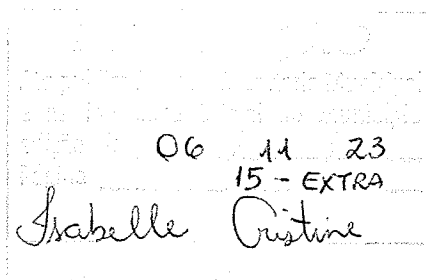 06 11 23
15 - EXTRA
Isabelle Cristine